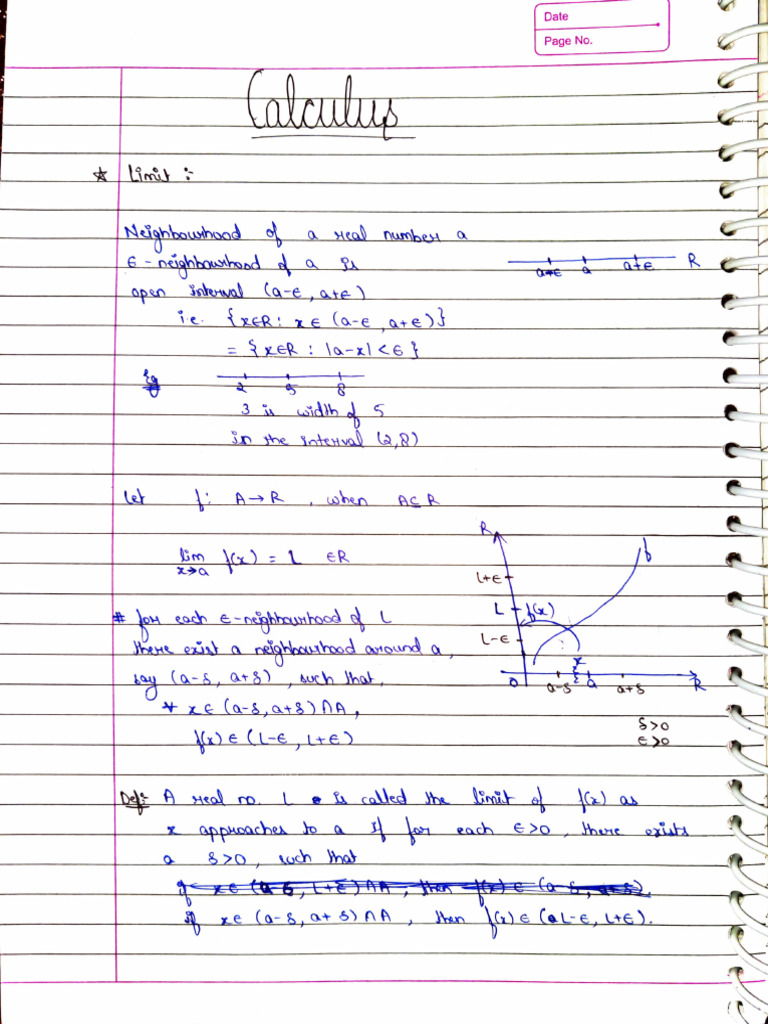 Date
Page No.
Calculus
☆ Limit :-
Neighbourhood of a real number a
ϵ-neighbourhood of a is
open interval (a-ϵ, a+ϵ)
a-ϵ a a+ϵ R
i.e. {x∈R : x∈ (a-ϵ, a+ϵ)}
= {x∈R : |a-x| < ϵ}
Eg
2 5 8
3 is width of 5
in the interval (2,8)
Let f: A→R , when A⊆R
lim f(x) = L ∈R
x→a
# for each ϵ-neighbourhood of L
there exist a neighbourhood around a,
say (a-δ, a+δ) , such that,
∀ x∈ (a-δ, a+δ)∩A,
f(x) ∈ (L-ϵ, L+ϵ)
R
L+ϵ
L f(x)
L-ϵ
x
0 a-δ a a+δ R
δ>0
ϵ>0
Def:- A real no. L is called the limit of f(x) as
x approaches to a if for each ϵ>0, there exists
a δ>0, such that
if x∈ (a-δ, a+δ)∩A, then f(x)∈ (L-ϵ, L+ϵ).